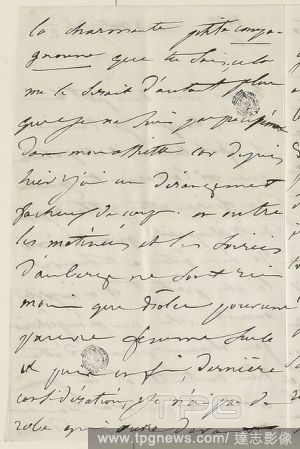 la charmante petite compa-
gnonne que tu sais, cela
me le serait d'autant plus
que je ne suis pas
dans mon assiette car depuis
hier j'ai un dérangement
facheux de corps. en outre
les matinées et les soirées
d'auberge ne sont rien
moins que drôles pour une
pauvre femme seule
et puis enfin, dernière
considération, je n'ai pas de
robe
TPG
www.tpgnews.com / 達志影像